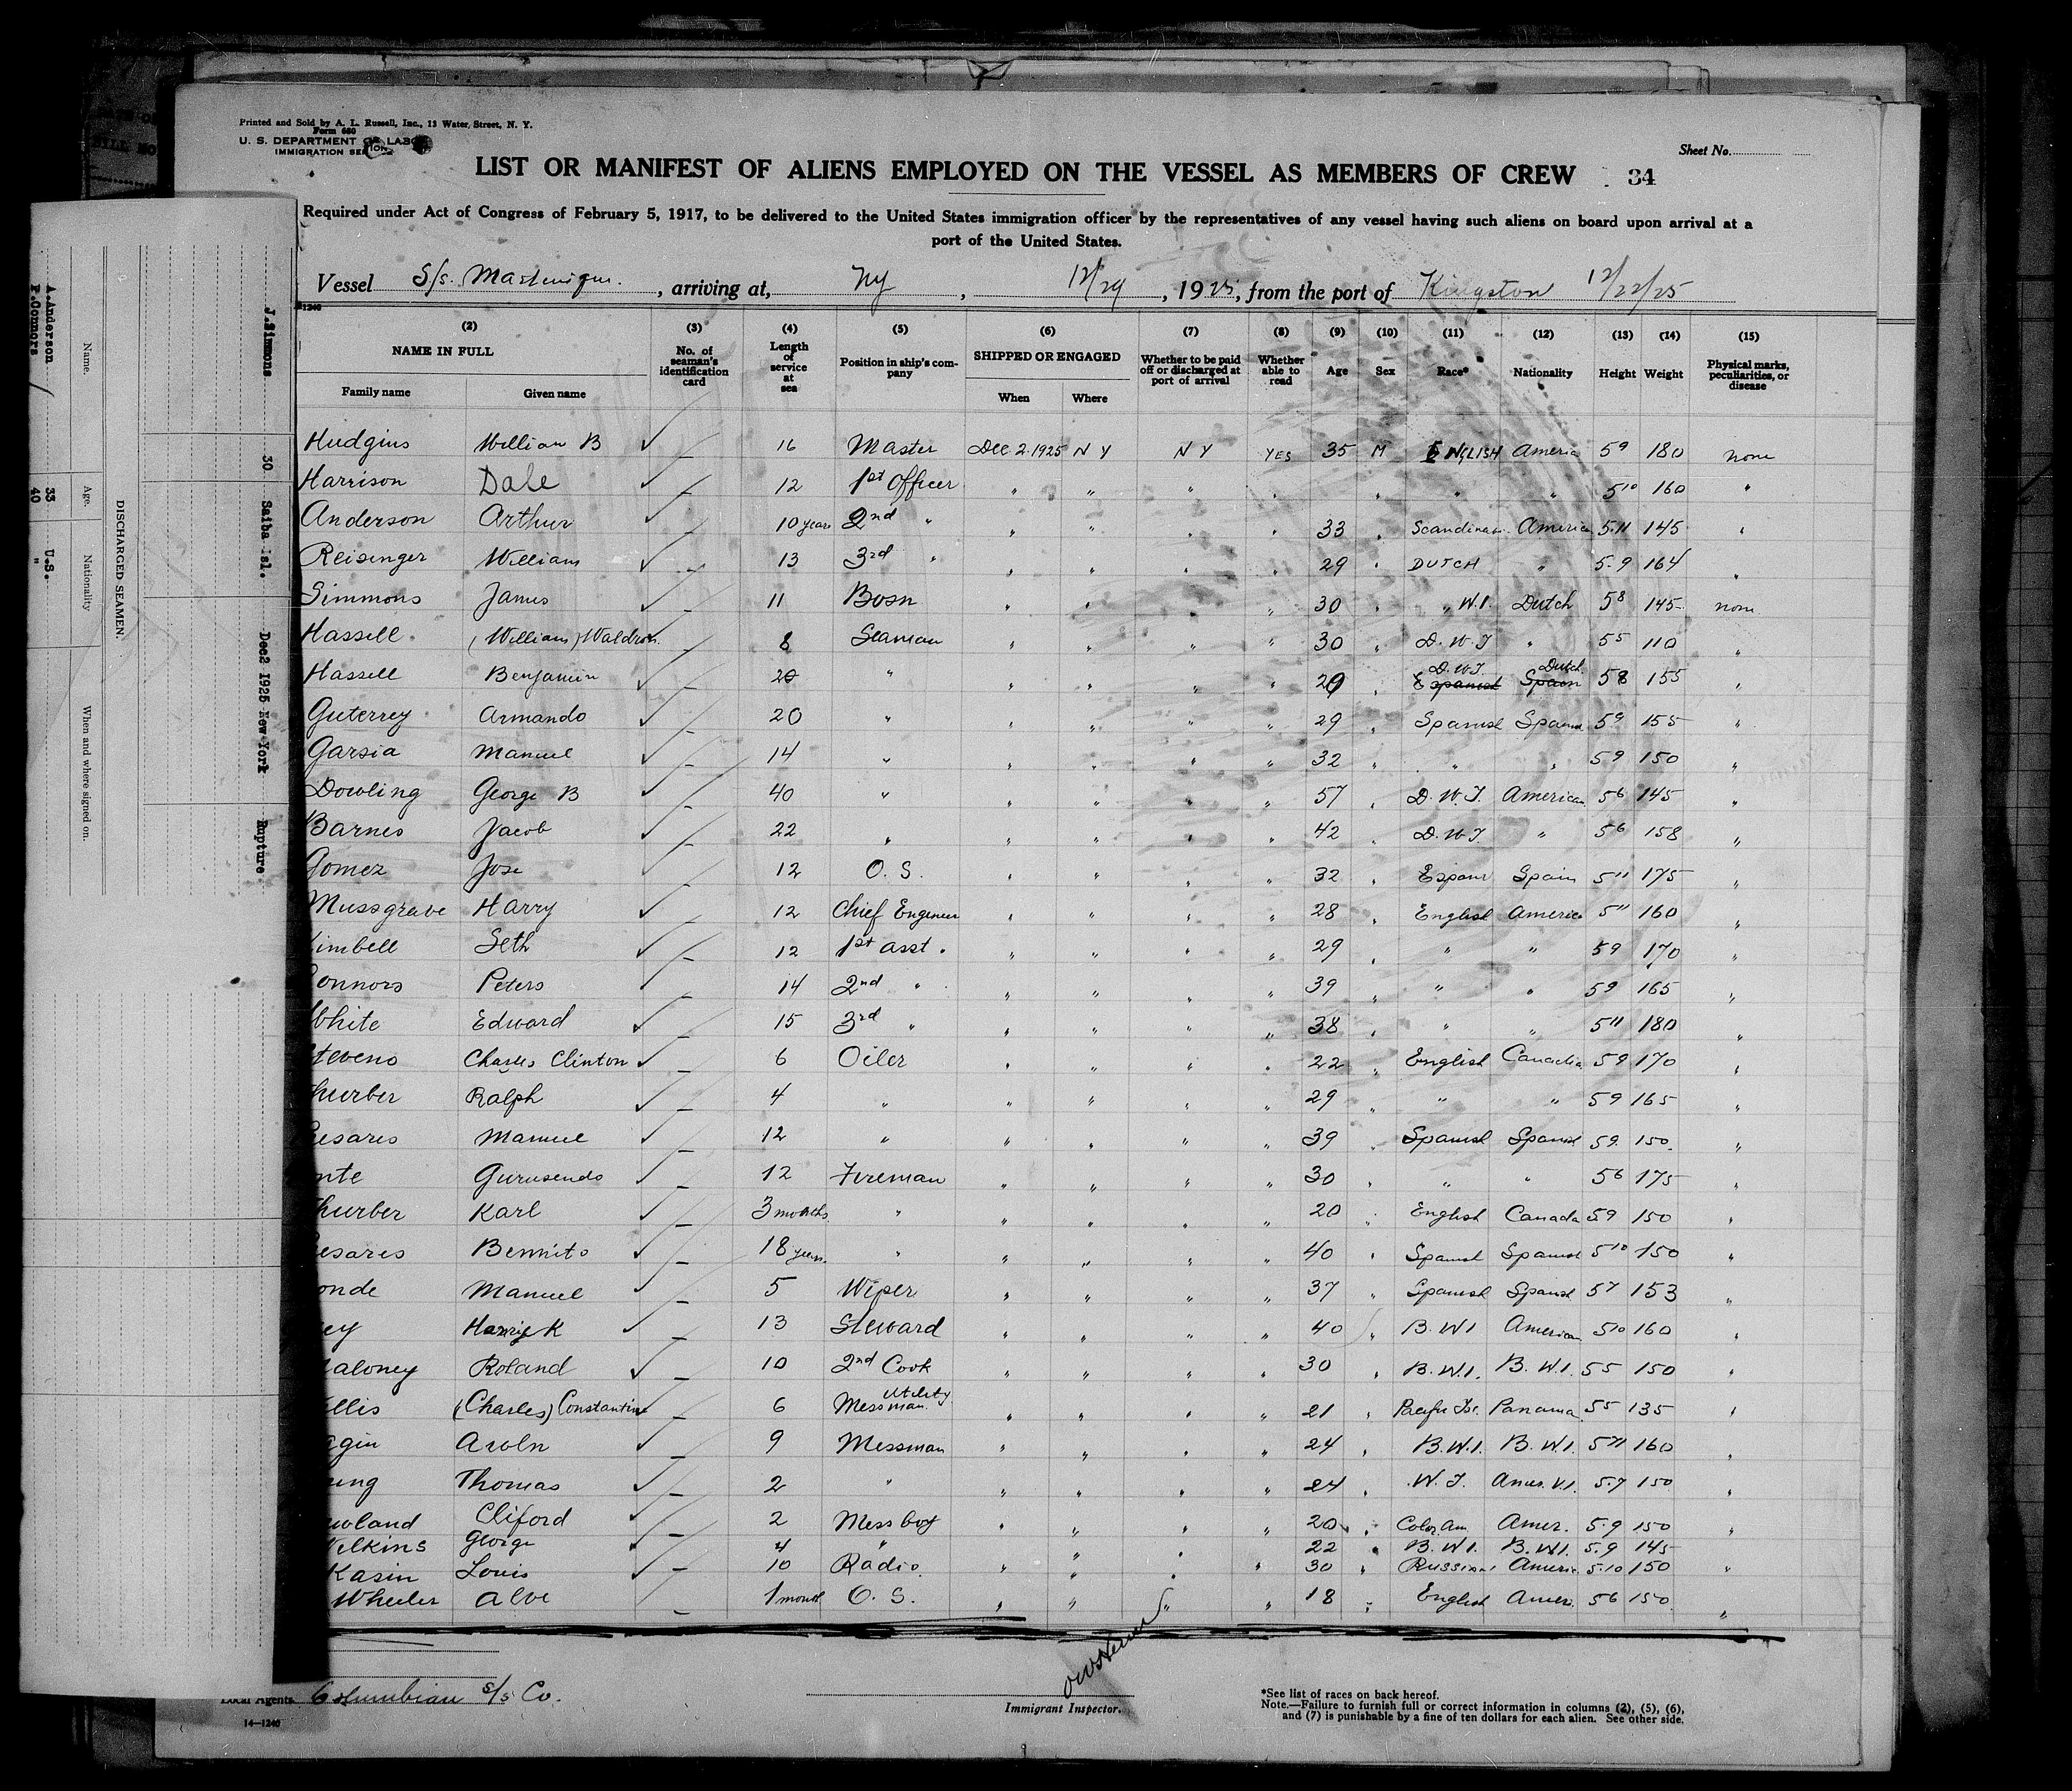 Printed and Sold by A. L. Russell, Inc., 13 Water, Street, N. Y.
Form 680
U. S. DEPARTMENT OF LABOR
IMMIGRATION
Sheet No.
LIST OR MANIFEST OF ALIENS EMPLOYED ON THE VESSEL AS MEMBERS OF CREW 34
Required under Act of Congress of February 5, 1917, to be delivered to the United States immigration officer by the representatives of any vessel having such aliens on board upon arrival at a
port of the United States.
Vessel S/s. Martinique. , arriving at, Ny , 12/29 , 1925, from the port of Kingston 12/22/25
(2) (3) (4) (5) (6) (7) (8) (9) (10) (11) (12) (13) (14) (15)
NAME IN FULL No. of seaman's identification card Length of service at sea Position in ship's company SHIPPED OR ENGAGED Whether to be paid off or discharged at port of arrival Whether able to read Age Sex Race* Nationality Height Weight Physical marks, peculiarities, or disease
Family name Given name When Where
Hudgins William B 16 Master Dec 2.1925 N Y N Y YES 35 M ENGLISH America 5 9 180 none
Harrison Dale 12 1st Officer " " " " " " " 5 10 160 "
Anderson Arthur 10 years 2nd " " " " " 33 " Scandinav America 5.11 145 "
Reisinger William 13 3rd " " " " " 29 " DUTCH " 5.9 164 "
Simmons James 11 Bosn " " " " 30 " " W.I. Dutch 5 8 145 none
Hassell (William) Waldron 8 Seaman " " " " 30 " D.W.I " 5 5 110 "
Hassell Benjamin 20 " " " " " 29 " D.W.I. Dutch 5 8 155 "
Guterrey Armando 20 " " " " " 29 " Spanish Spanish 5 9 155 "
Garsia Manuel 14 " " " " " 32 " " " 5 9 150 "
Dowling George B 40 " " " " " 57 " D.W.I. American 5 6 145 "
Barnes Jacob 22 " " " " " 42 " D.W.I. " 5 6 158 "
Gomez Jose 12 O. S. " " " " 32 " Espanr Spain 5 11 175 "
Mussgrave Harry 12 Chief Engineer " " " " 28 " English America 5 11 160 "
imbell Seth 12 1st asst. " " " " 29 " " " 5 9 170 "
onnors Peters 14 2nd " " " " " 39 " " " 5 9 165 "
White Edward 15 3rd " " " " " 38 " " " 5 11 180 "
tevens Charles Clinton 6 Oiler " " " " 22 " English Canadia 5 9 170 "
hurber Ralph 4 " " " " " 29 " " " 5 9 165 "
esares Manuel 12 " " " " " 39 " Spanish Spanish 5 9. 150. "
nte Gurusendo 12 Fireman " " " " 30 " " " 5 6 175 "
hurber Karl 3 months " " " " " 20 " English Canada 5 9 150 "
esares Bennito 18 years. " " " " " 40 " Spanish Spanish 5 10 150 "
onde Manuel 5 Wiper " " " " 37 " Spanish Spanish 5 7 153 "
ey Harry K 13 Steward " " " " 40 " B.W.I American 5 10 160 "
aloney Roland 10 2nd Cook " " " " 30 " B.W.I. B.W.I. 5 5 150 "
llis (Charles) Constantine 6 Utility Messman " " " " 21 " Pacific Isr. Panama 5 5 135 "
agin Aroln 9 Messman " " " " 24 " B.W.I. B.W.I. 5 11 160 "
ung Thomas 2 " " " " " 24 " W.I. Amer. V.I. 5.7 150 "
wland Cliford 2 Mess boy " " " " 20 " Color. Am. Amer. 5.9 150 "
ilkins George 4 " " " 22 " B.W.I. B.W.I. 5.9 145
Kasin Louis 10 Radio " " " " 30 " Russian America 5.10 150 "
Wheeler Alve 1 month O. S. " " " " 18 " English Amer. 5 6 150 "
Local Agents Columbian S/s Co.
14—1240
Immigrant Inspector.
*See list of races on back hereof.
Note.—Failure to furnish full or correct information in columns (2), (5), (6),
and (7) is punishable by a fine of ten dollars for each alien. See other side.
DISCHARGED SEAMEN.
Name. Age. Nationality When and where signed on.
A. Anderson 33 U.S.
P. Connors 40 "
J. Simmons 30 Saiba Isl. Dec2 1925 New York Rupture.